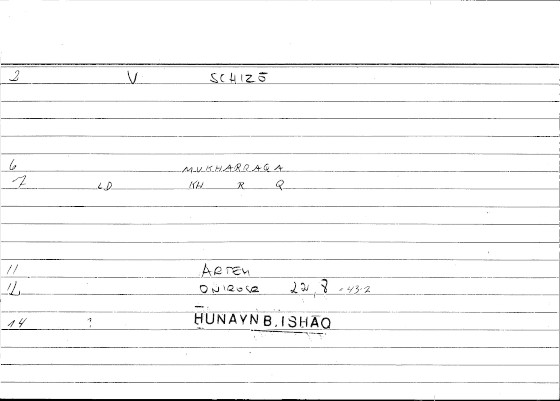 2 V SCHIZŌ
6 MUKHARRAQA
7 LD KH R Q
11 ARTEM
12 ONIROCR 22,8 -43.2
14 ? ḤUNAYN B. ISḤĀQ